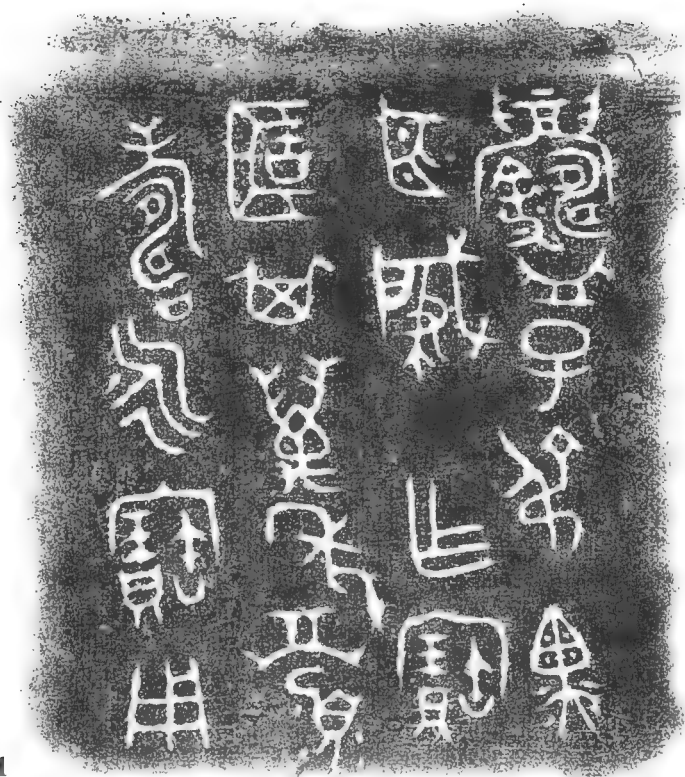 鑄子叔黑
臣肇作寶
簠其萬年眉
壽永寶用